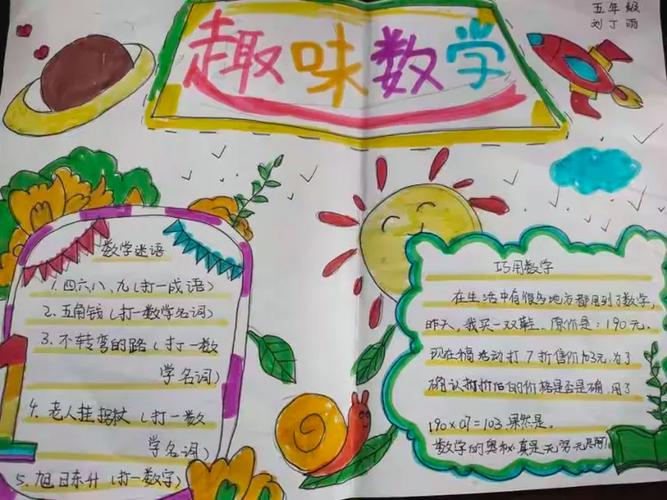 趣味数学
五年级
刘丁雨
数学迷语
1.四六八、九(打一成语)
2.五角钱(打一数学名词)
3.不转弯的路(打一数
学名词)
4.老人挂拐杖(打一数
学名词)
5.旭日东升(打一数字)
巧用数学
在生活中有很多地方都用到了数学,
昨天,我买一双鞋、原价是:190元,
现在搞活动打7折售价103元,为了
确认打折后的价格是否是确,用了
190×07=103.果然是。
数学的奥秘真是无穷无尽啊